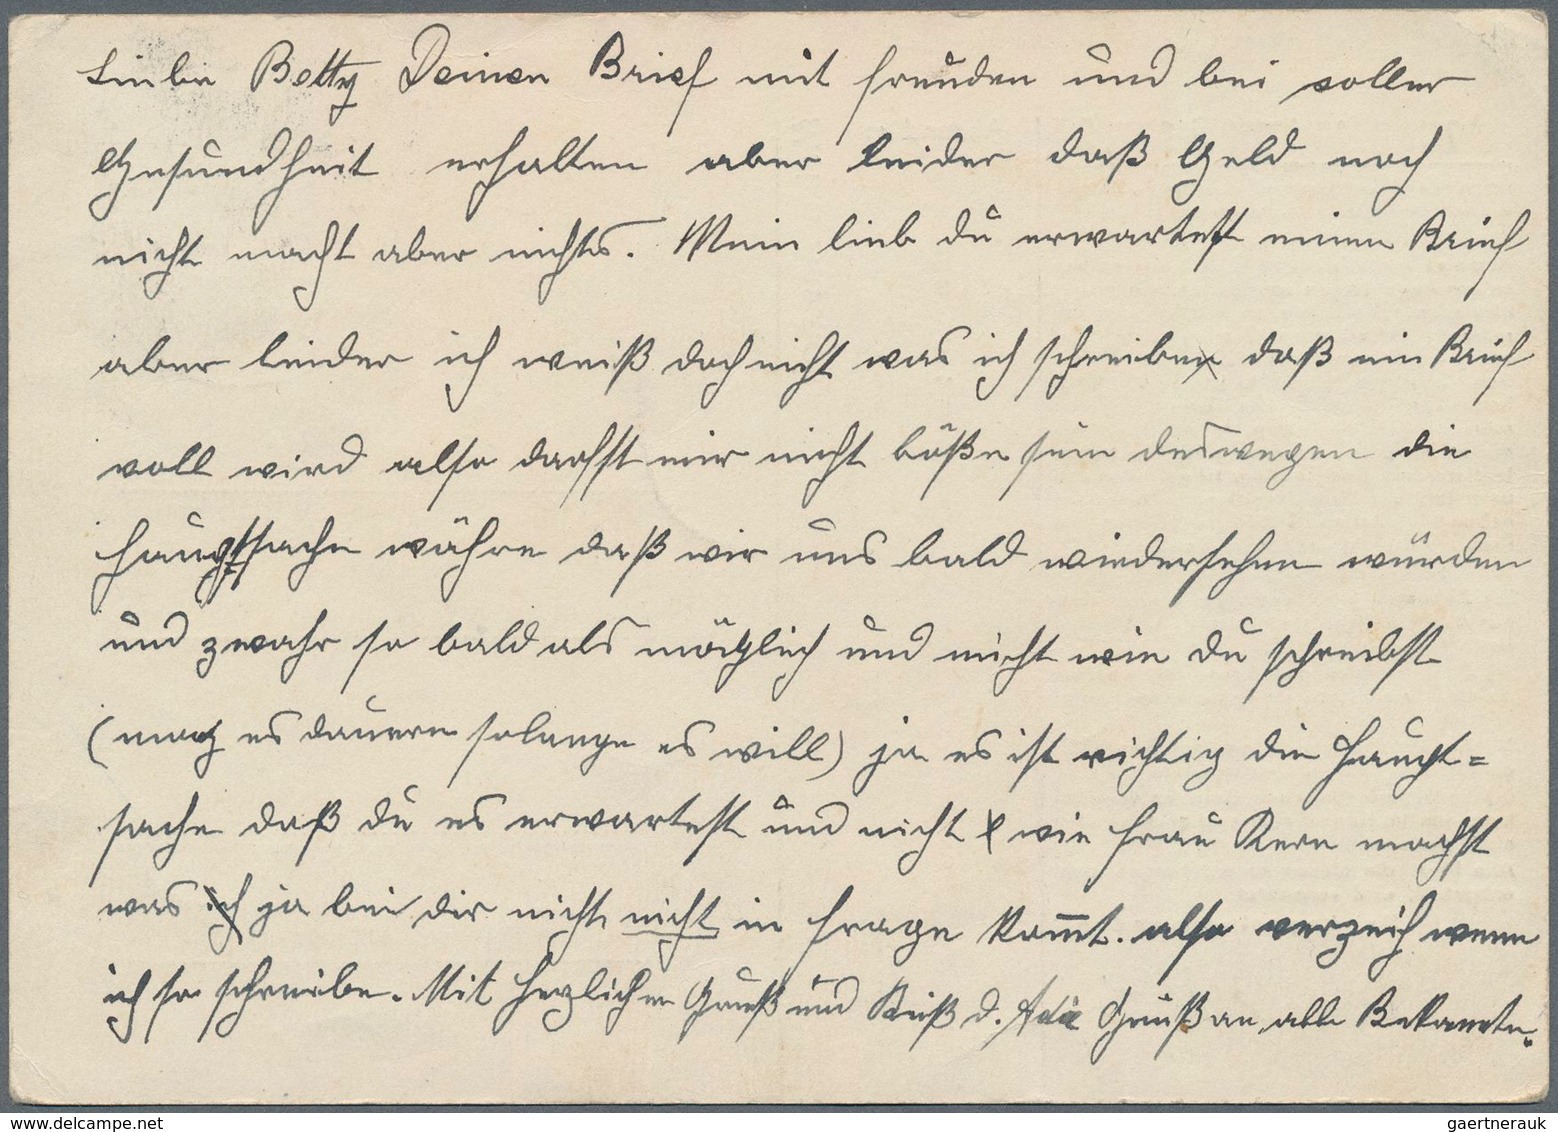 Liebe Betty Deinen Brief mit freuden und bei voller
Gesundheit erhalten aber leider daß Geld noch
nicht macht aber nichts. Mein lieb du erwartest einen Brief
aber leider ich weiß doch nicht was ich schreiben daß ein Brief
voll wird also darfst mir nicht böße sein deswegen die
Hauptsache währe daß wir uns bald wiedersehen würden
und zwahr so bald als möglich und nicht wie du schreibst
(mag es dauern solange es will) ja es ist richtig die Haupt=
sache daß du es erwartest und nicht wie Frau Kern machst
was ja bei dir nicht nicht in Frage kom̅t. also verzeih wenn
ich so schreibe. Mit herzlichen Gruß und Kuß d. Gruß an alle Bekannte.
gaertnerauk